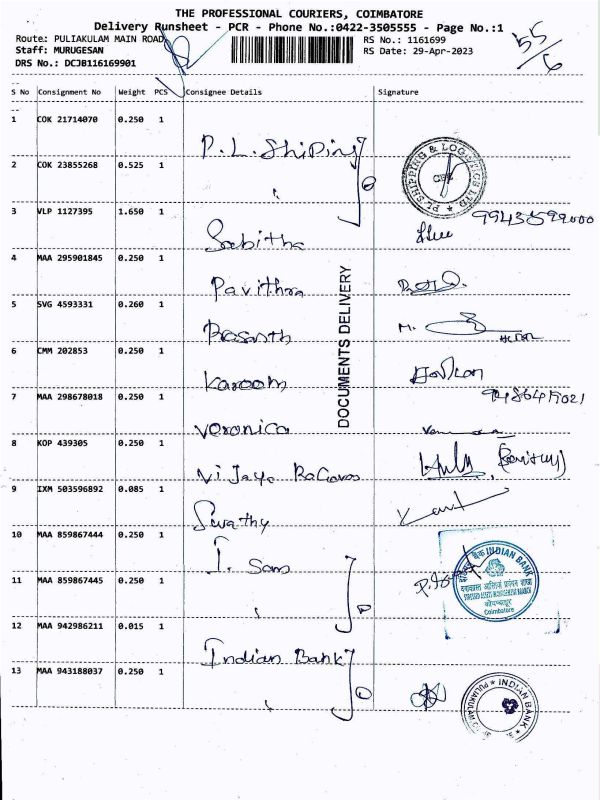 THE PROFESSIONAL COURIERS, COIMBATORE
Delivery Runsheet - PCR - Phone No.:0422-3505555 - Page No.:1
Route: PULIAKULAM MAIN ROAD
RS No.: 1161699
Staff: MURUGESAN
RS Date: 29-Apr-2023
DRS No.: DCJB116169901
55/6
S No Consignment No Weight PCS Consignee Details Signature
1 COK 21714070 0.250 1
P.L. Shiping
2 COK 23855268 0.525 1
PL SHIPPING & LOGISTICS LTD
3 VLP 1127395 1.650 1
Sabitha
4 MAA 295901845 0.250 1
Pavithra
5 SVG 4593331 0.260 1
Prasanth M.
6 CMM 202853 0.250 1
Karoom
7 MAA 298678018 0.250 1
Veronica
8 KOP 439305 0.250 1
Vijaya
9 IXM 503596892 0.085 1
Swathy
10 MAA 859867444 0.250 1
INDIAN BANK
Coimbatore
11 MAA 859867445 0.250 1
12 MAA 942986211 0.015 1
Indian Bank
13 MAA 943188037 0.250 1
INDIAN BANK
DOCUMENTS DELIVERY